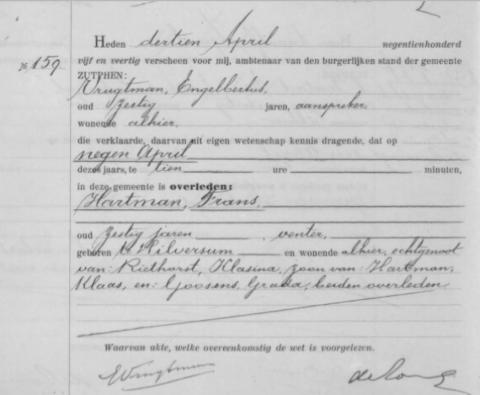 Heden dertien April negentienhonderd
№ 159 vijf en veertig verscheen voor mij, ambtenaar van den burgerlijken stand der gemeente
ZUTPHEN:
Vrugtman, Engelbertus,
oud zestig jaren, aanspreker,
wonende alhier,
die verklaarde, daarvan uit eigen wetenschap kennis dragende, dat op
negen April
dezes jaars, te tien ure minuten,
in deze gemeente is overleden:
Hartman, Frans,
oud zestig jaren, venter,
geboren te Hilversum en wonende alhier, echtgenoot
van: Riethorst, Klasina, zoon van: Hartman,
Klaas, en: Goossens, Grada, beiden overleden
Waarvan akte, welke overeenkomstig de wet is voorgelezen.
EVrugtman